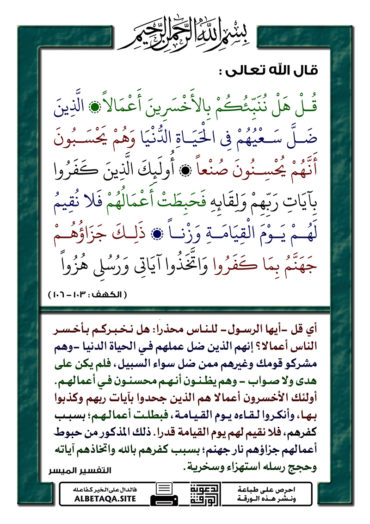 بسم الله الرحمن الرحيم
قال الله تعالى :
قُلْ هَلْ نُنَبِّئُكُمْ بِالأَخْسَرِينَ أَعْمَالاً ۞ الَّذِينَ
ضَلَّ سَعْيُهُمْ فِي الْحَيَاةِ الدُّنْيَا وَهُمْ يَحْسَبُونَ
أَنَّهُمْ يُحْسِنُونَ صُنْعاً ۞ أُولَئِكَ الَّذِينَ كَفَرُوا
بِآيَاتِ رَبِّهِمْ وَلِقَائِهِ فَحَبِطَتْ أَعْمَالُهُمْ فَلا نُقِيمُ
لَهُمْ يَوْمَ الْقِيَامَةِ وَزْناً ۞ ذَلِكَ جَزَاؤُهُمْ
جَهَنَّمُ بِمَا كَفَرُوا وَاتَّخَذُوا آيَاتِي وَرُسُلِي هُزُواً
( الكهف : ١٠٣ - ١٠٦ )
أي قل -أيها الرسول- للناس محذرا: هل نخبركم بأخسر
الناس أعمالا؟ إنهم الذين ضل عملهم في الحياة الدنيا -وهم
مشركو قومك وغيرهم ممن ضل سواء السبيل، فلم يكن على
هدى ولا صواب - وهم يظنون أنهم محسنون في أعمالهم.
أولئك الأخسرون أعمالا هم الذين جحدوا بآيات ربهم وكذبوا
بها، وأنكروا لقاءه يوم القيامة، فبطلت أعمالهم؛ بسبب
كفرهم، فلا نقيم لهم يوم القيامة قدرا. ذلك المذكور من حبوط
أعمالهم جزاؤهم نار جهنم؛ بسبب كفرهم بالله واتخاذهم آياته
وحجج رسله استهزاء وسخرية.
التفسير الميسر
احرص على طباعة
ونشر هذه الورقة
الدعوية
فالدال على الخير كفاعله
ALBETAQA.SITE